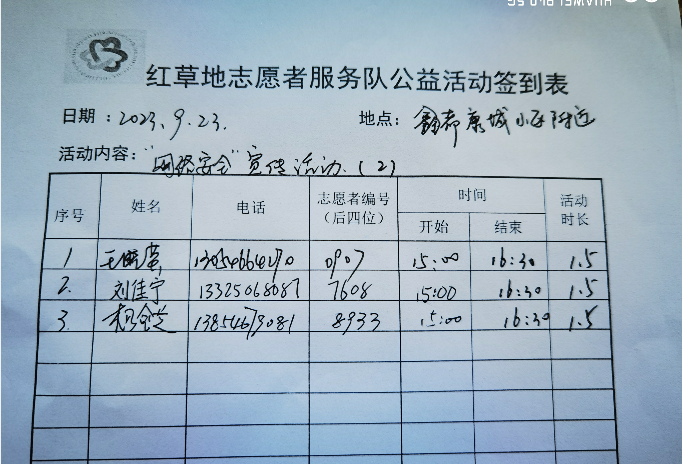 红草地志愿者服务队公益活动签到表
日期：2023.9.23.
地点：鑫都康城小区附近
活动内容："网络安全"宣传活动.（2）
序号 姓名 电话 志愿者编号（后四位） 时间 开始 结束 活动时长
1 王 0907 15:00 16:30 1.5
2. 刘佳宁 13325068087 7608 15:00 16:30 1.5
3. 13854679081 8933 15:00 16:30 1.5